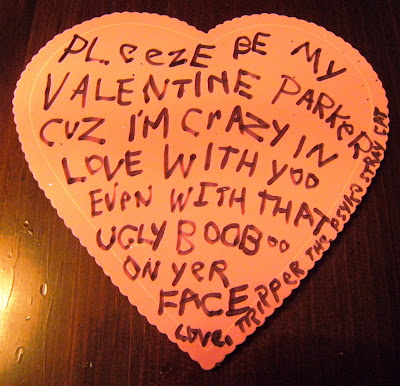 PLEEZE BE MY
VALENTINE PARKER
CUZ I'M CRAZY IN
LOVE WITH YOO
EVEN WITH THAT
UGLY BOOBOO
ON YER
FACE
LOVE, TRIPPER THE PSYKO STRAY CAT